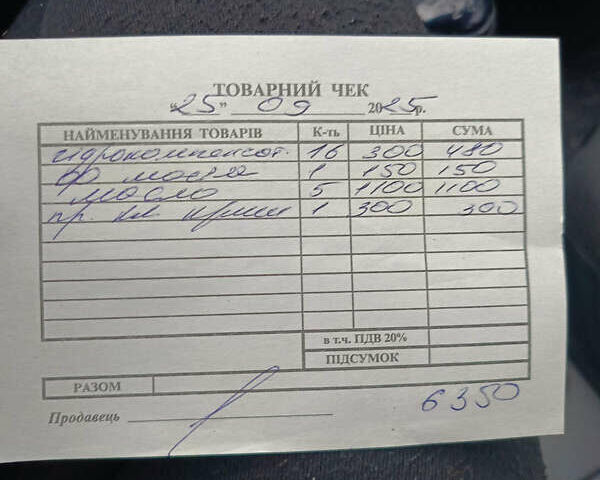 ТОВАРНИЙ ЧЕК
"25" 09 2025р.
НАЙМЕНУВАННЯ ТОВАРІВ К-ть ЦІНА СУМА
гідрокомпенсат. 16 300 480
ф масла 1 150 150
масло 5 1100 1100
пр. кл кришки 1 300 300
в т.ч. ПДВ 20%
ПІДСУМОК
РАЗОМ
6350
Продавець